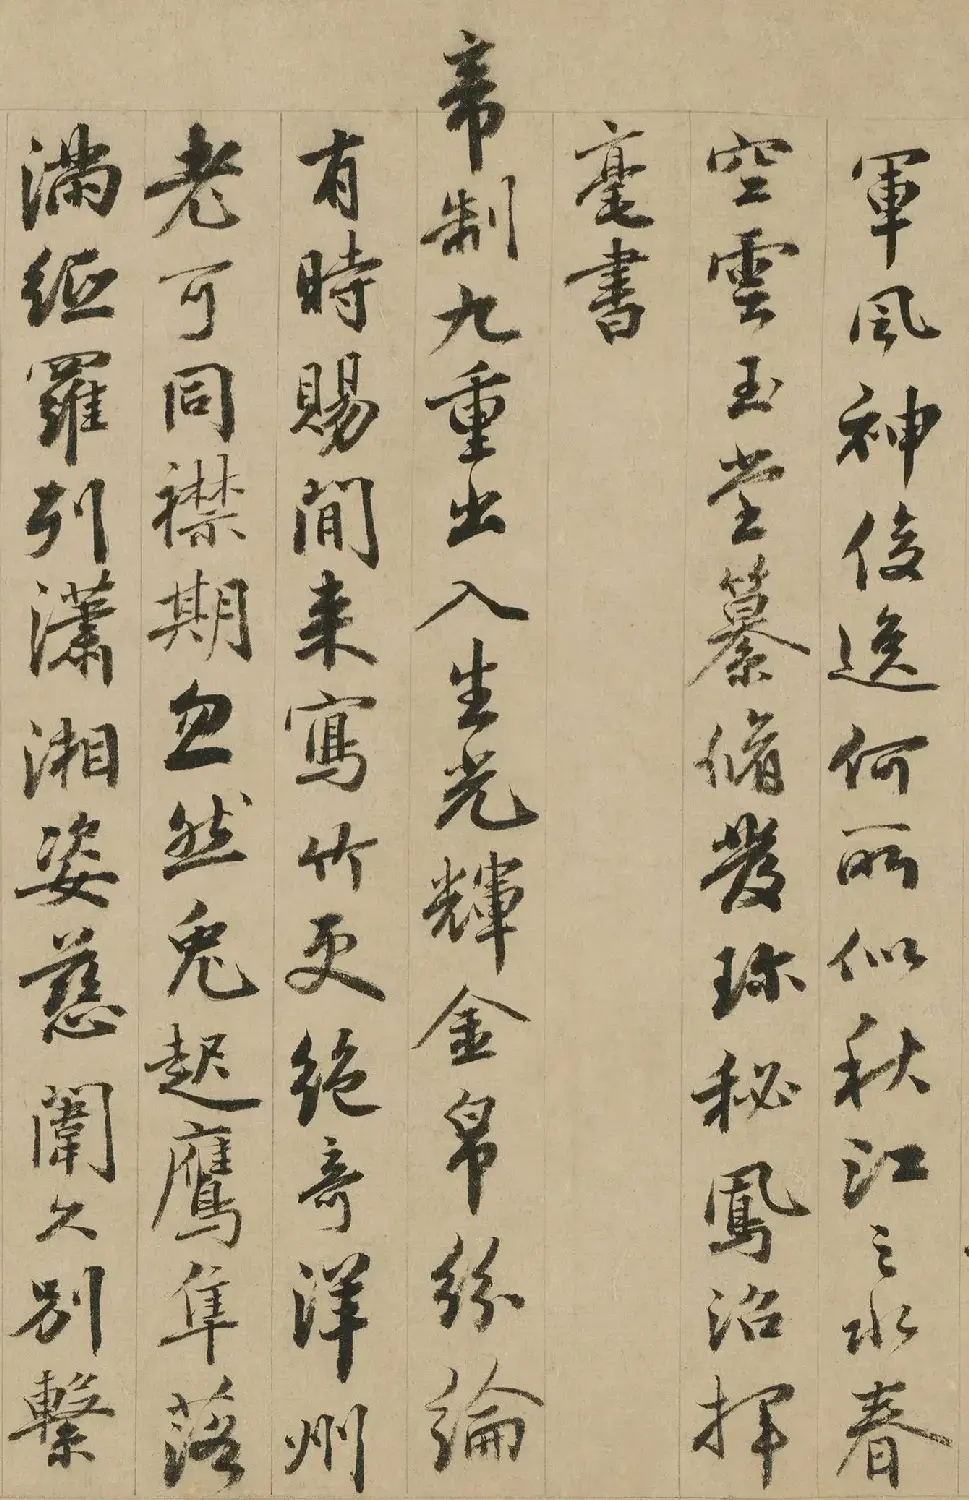 軍風神俊逸何所似秋江之水春
空雲玉堂纂脩發珎秘鳳沼揮
毫書
帝制九重出入生光輝金帛紛綸
有時賜閒来寫竹更絶竒洋州
老可同襟期忽然兎起鷹隼落
滿紙羅列瀟湘姿慈闈久別繫